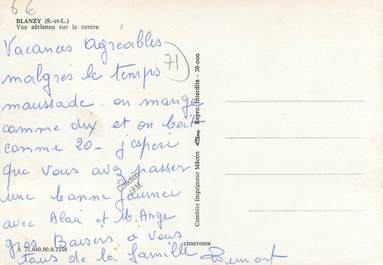 6 €
BLANZY (S.-et-L.)
Vue aérienne sur le centre
Vacances agréables
malgrés le temps
71
maussade. on mange
comme dix et on boit
comme 20 - j'esperi
que vous avez passer
une bonne journer
avec Alain et M. Ange
gros Baisers à vous
tous de la famille
A 71.040.00.0.7258
cimcrome
Combier Imprimeur Mâcon
Repro. Interdite - 50-000